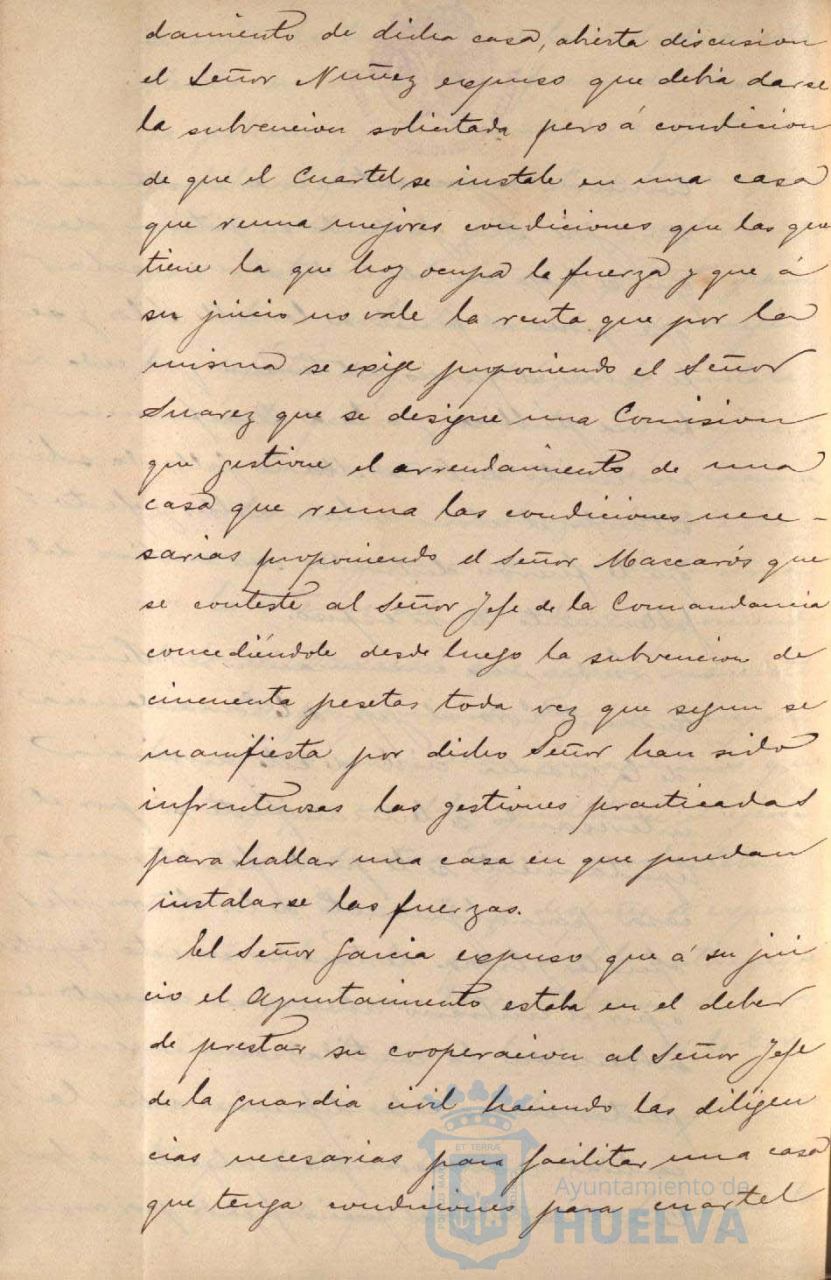 damiento de dicha casa, abierta discusion
el Señor Nuñez expuso que debia darse
la subvencion solicitada pero á condicion
de que el Cuartel se instale en una casa
que reuna mejores condiciones que las que
tiene la que hoy ocupa la fuerza y que á
su juicio no vale la renta que por la
misma se exige proponiendo el Señor
Suarez que se designe una Comision
que gestione el arrendamiento de una
casa que reuna las condiciones nece-
sarias proponiendo el Señor Mascarós que
se conteste al Señor Jefe de la Comandancia
concediéndole desde luego la subvencion de
cincuenta pesetas toda vez que segun se
manifiesta por dicho Señor han sido
infructuosas las gestiones practicadas
para hallar una casa en que puedan
instalarse las fuerzas.
El Señor Garcia expuso que á su jui
cio el Ayuntamiento estaba en el deber
de prestar su cooperacion al Señor Jefe
de la guardia civil haciendo las diligen
cias necesarias para facilitar una casa
que tenga condiciones para cuartel
ET TERRÆ
Ayuntamiento de
HUELVA